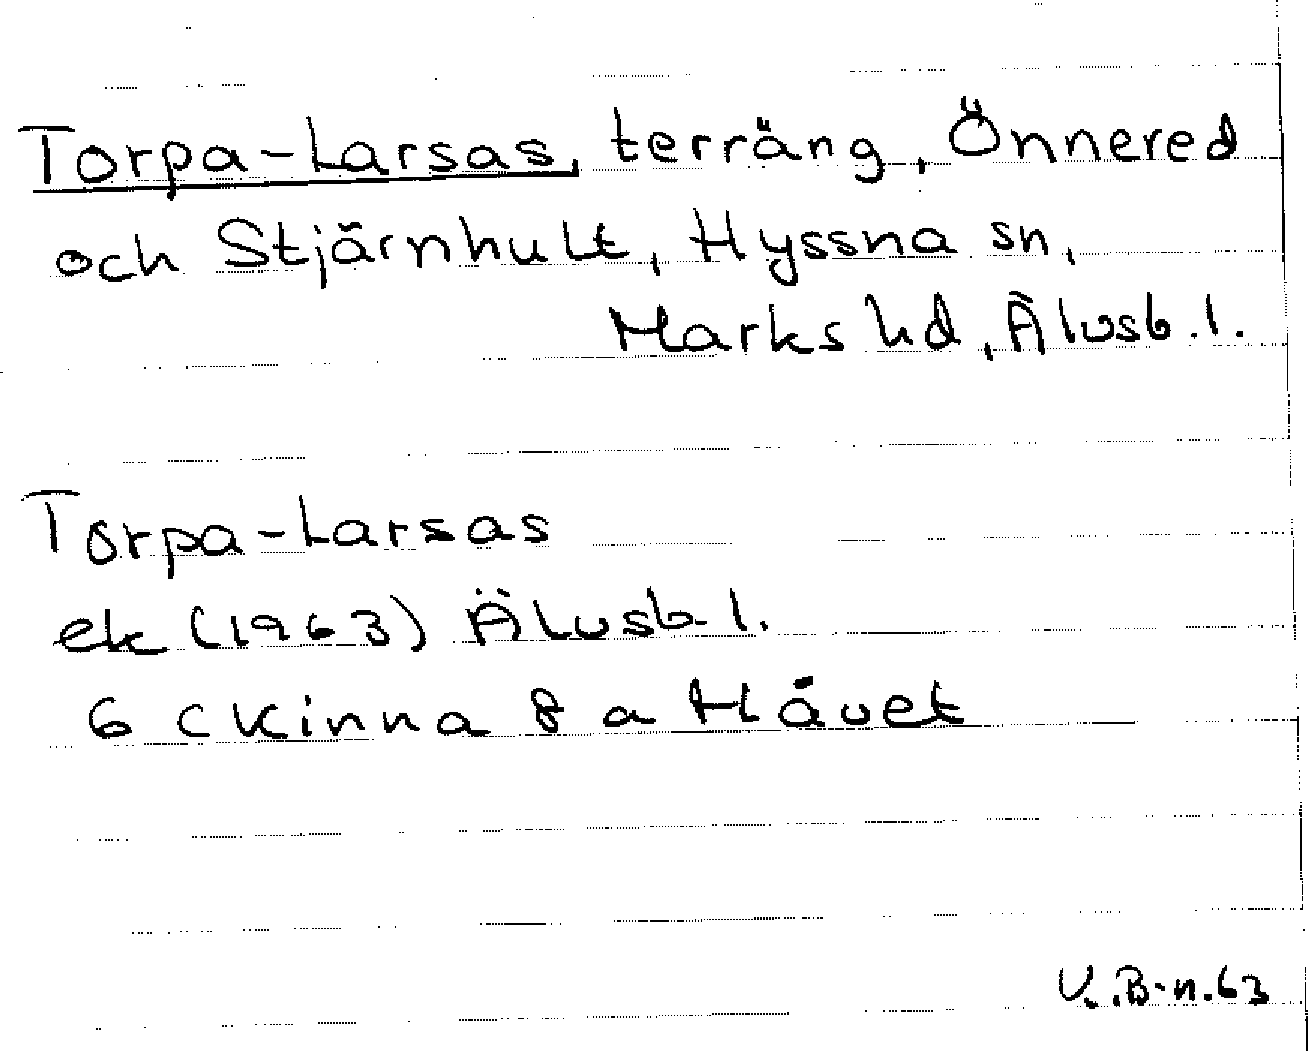 Torpa-Larsas, terräng, Önnered
och Stjärnhult, Hyssna sn,
Marks hd, Älvsb.l.
Torpa-Larsas
ek (1963) Älvsb.l.
6 C Kinna 8 a Hävet
V.B-n.63